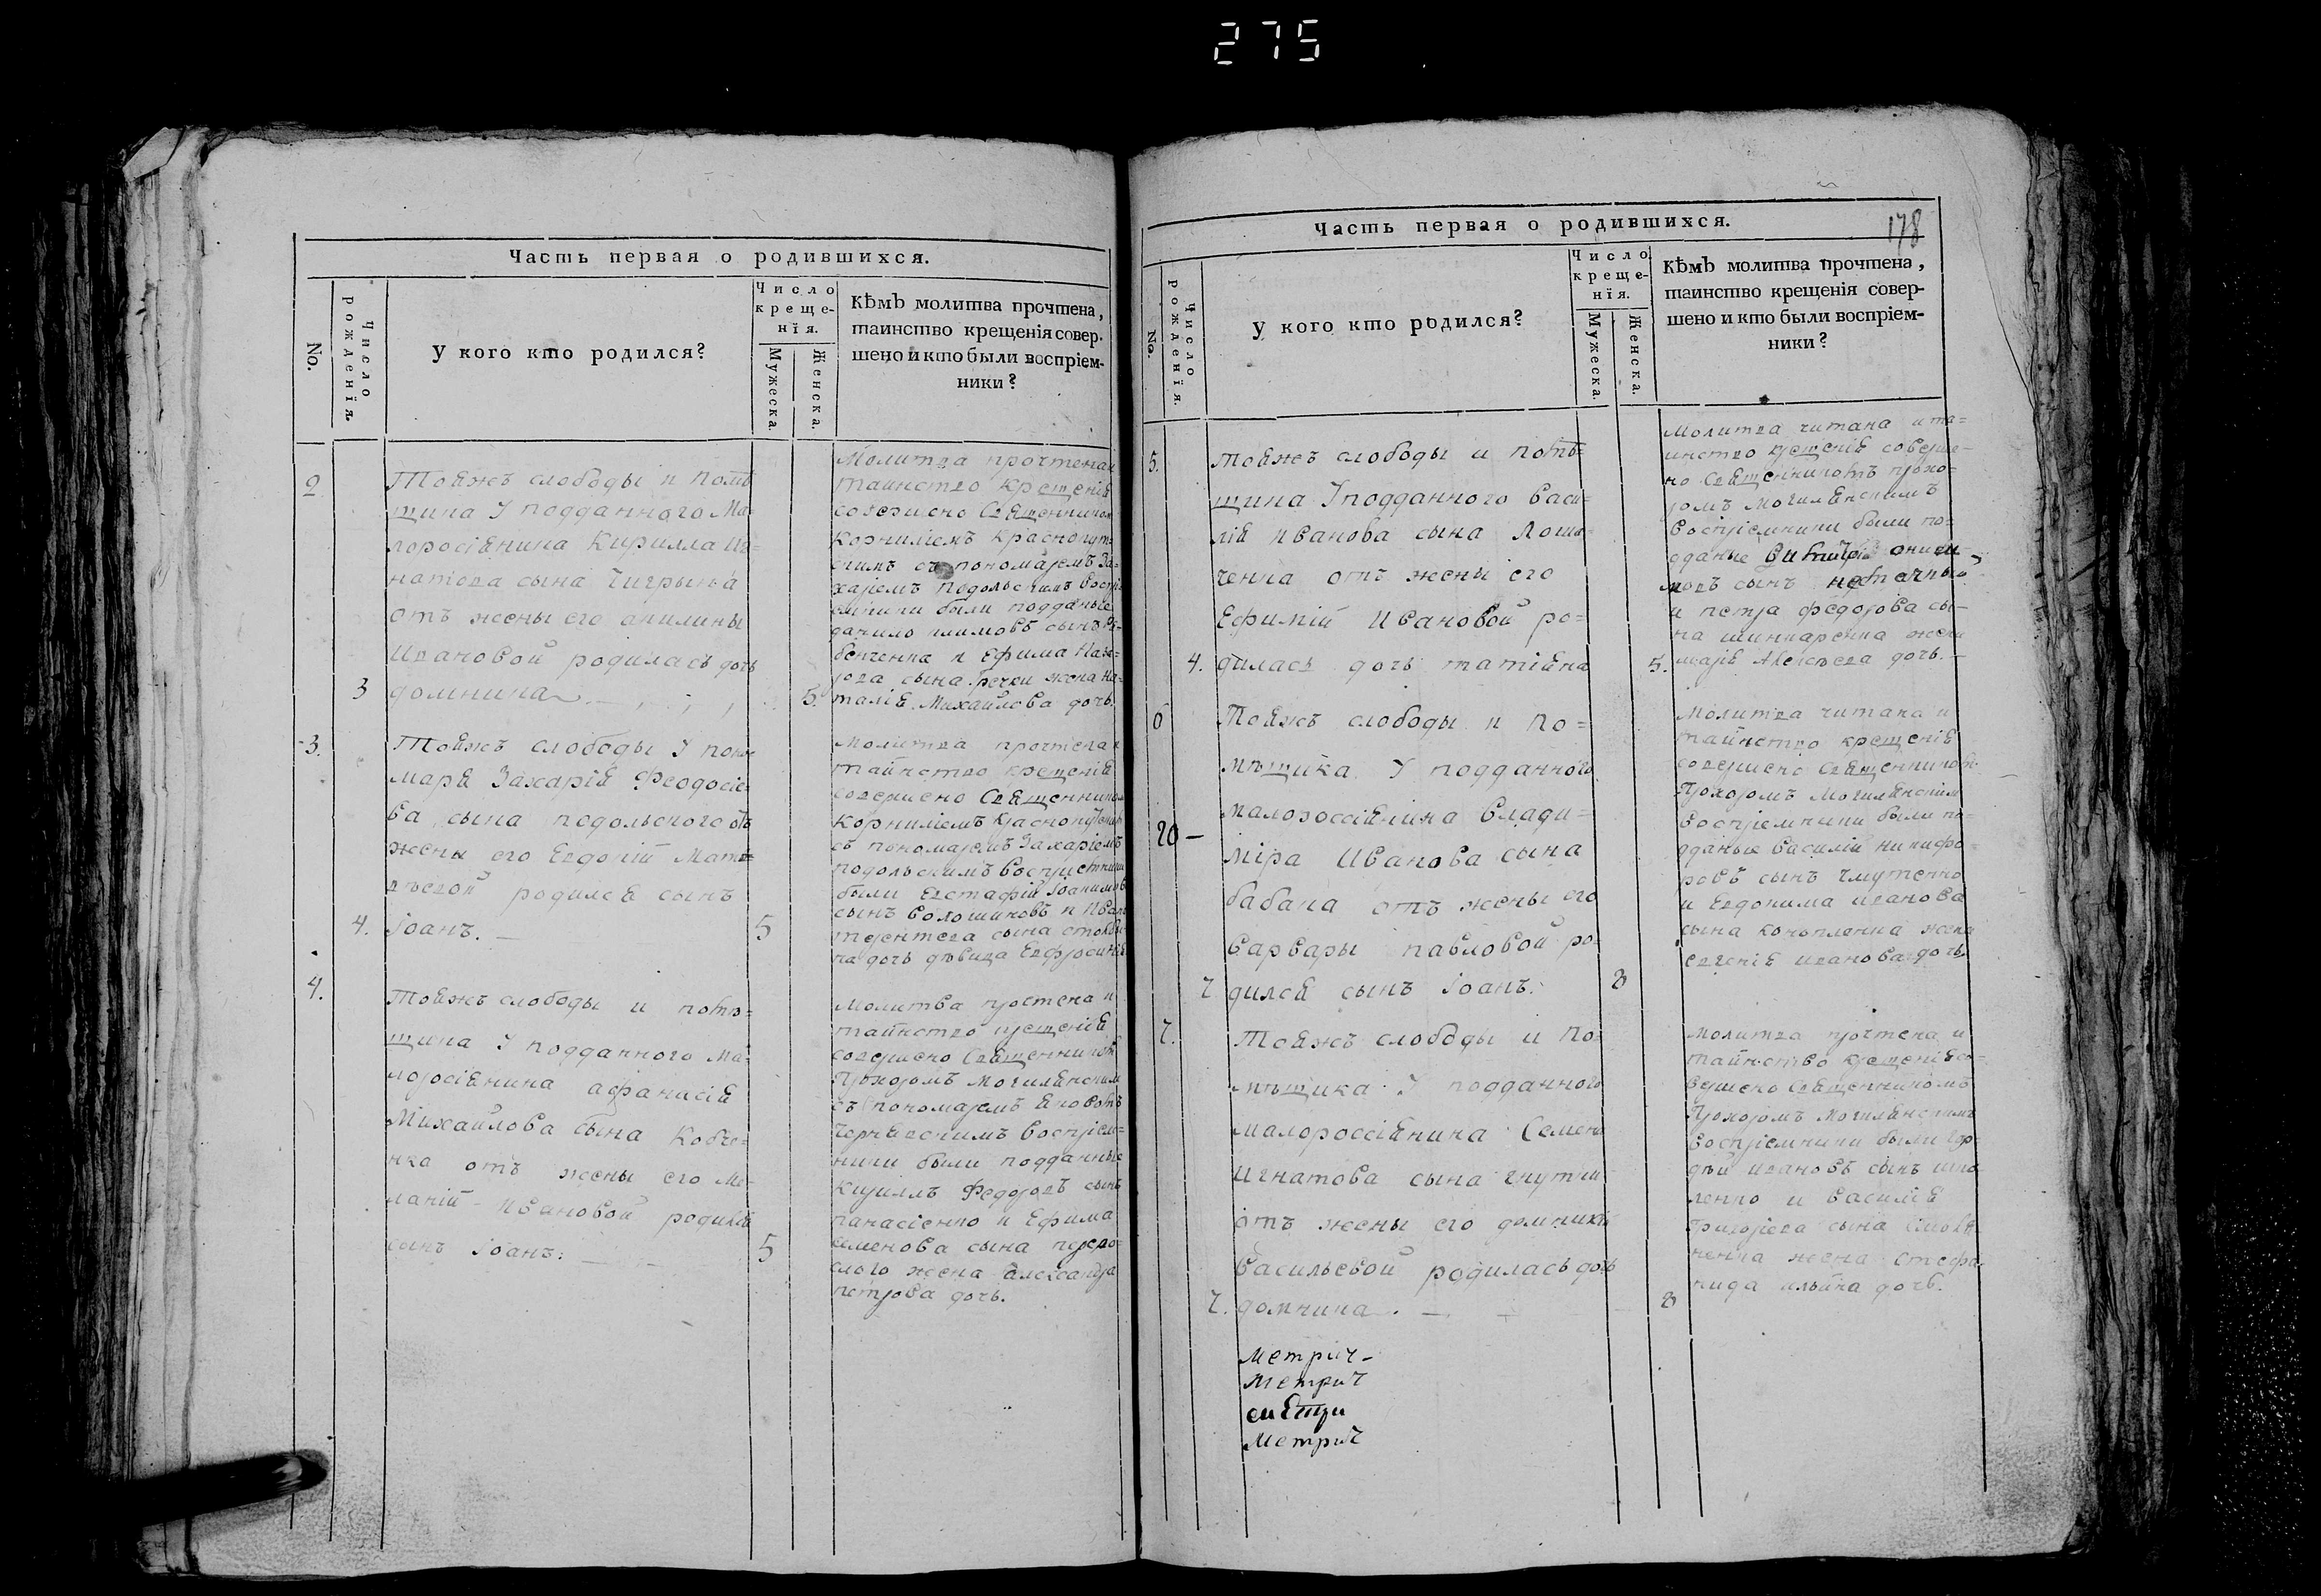 275
Часть первая о родившихся.
No.
Число рожденїя.
У кого кто родился?
Число крещенїя.
Мужеска.
Женска.
Кѣмъ молитва прочтена,
таинство крещенїя совер-
шено и кто были воспрїем-
ники?
2
Тояжъ слободы и помѣ
щика у подданного Ма-
лоросіянина Кирилла Иг=
натова сына
отъ жены его акилины
Ивановой родилась дочь
3 домникіа
5.
Молитва прочтена и
таинство крещеніе
Священником
Корниліемъ Краснокут=
скимъ съ пономаремъ За-
харіемъ подольскимъ
были подданые
данило климовъ сынъ
и Ефима
сына речки жена На-
таліе Михайлова дочь.
3.
Тояжъ слободы у поно
маря Захарія Феодосіе
ва сына подольского отъ
жены его Евдокіи Матв
ѣевой родился сынъ
4. Іоанъ.
5
Молитва прочтена и
таинство крещеніе
совершено Священником
Корниліемъ
съ пономаремъ Захаріемъ
подольскимъ
были Евстафій
сынъ Волошиновъ и
сына
дочь дѣвица Евфросиніе
4.
Тояжъ слободы и помѣ=
щика у подданного Ма-
лоросіянина афанасія
Михайлова сына Кобче=
нка отъ жены его Ме-
ланіи Ивановой родился
сынъ Іоанъ.
5
Молитва прочтена и
таинство крещеніе
совершено Священником
Прохоромъ Могилянским
съ пономаремъ Яковомъ
Чернявскимъ воспріем-
ники были подданные
Кирилъ Федоровъ сынъ
панасіенко и Ефима
семенова сына
жена Александра
петрова дочь.
Часть первая о родившихся.
178
No.
Число рожденїя.
У кого кто родился?
Число крещенїя.
Мужеска.
Женска.
Кѣмъ молитва прочтена,
таинство крещенїя совер-
шено и кто были воспрїем-
ники?
5.
Тояжъ слободы и помѣ=
щика у подданного Васи-
лія Иванова сына Лоша-
ченка отъ жены его
Ефиміи Ивановой ро=
4. дилась дочь татіяна
5.
Молитва читана и та=
инство крещеніе соверше-
но Священникомъ прохо-
ромъ Могилянскимъ
воспріемники были по-
дданые
сынъ
и петра федорова сы-
на шинкаренка жена
дочь.
6
20
Тояжъ слободы и по=
мѣщика у подданного
малороссіянина Влади=
міра Иванова сына
бабака отъ жены его
Варвары павловой ро-
7 дился сынъ Іоанъ.
8
Молитва читана и
таинство крещеніе
совершено Священником
Прохоромъ Могилянским
воспріемники были по-
дданые Василій никифо-
ровъ сынъ
и Евдокима иванова
сына конопленка жена
Евгеніе иванова дочь.
7.
Тояжъ слободы и по-
мѣщика у подданного
малороссіянина Семена
Игнатова сына
отъ жены его домникіи
Васильевой родилась дочь
7. домникіа.
8
Молитва прочтена и
таинство крещеніе со-
вершено Священникомъ
Прохоромъ Могилянскимъ
воспріемники были
ивановъ сынъ
и василія
Григорієва сына
жена Стефа-
нида ильина дочь.
Метрич-
Метрич
Метрич